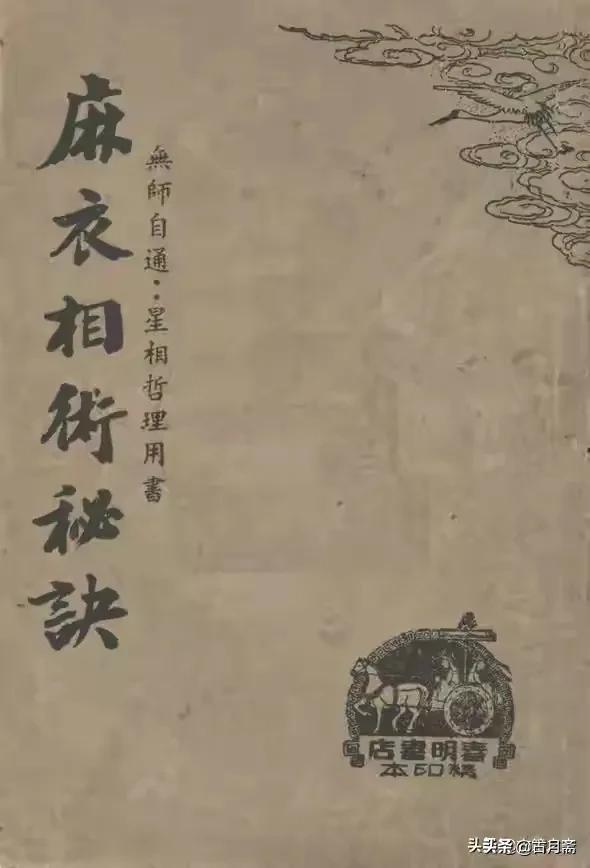 麻衣相術秘訣
無師自通··星相哲理用書
春明書店
精印本
头条 @苦月斋